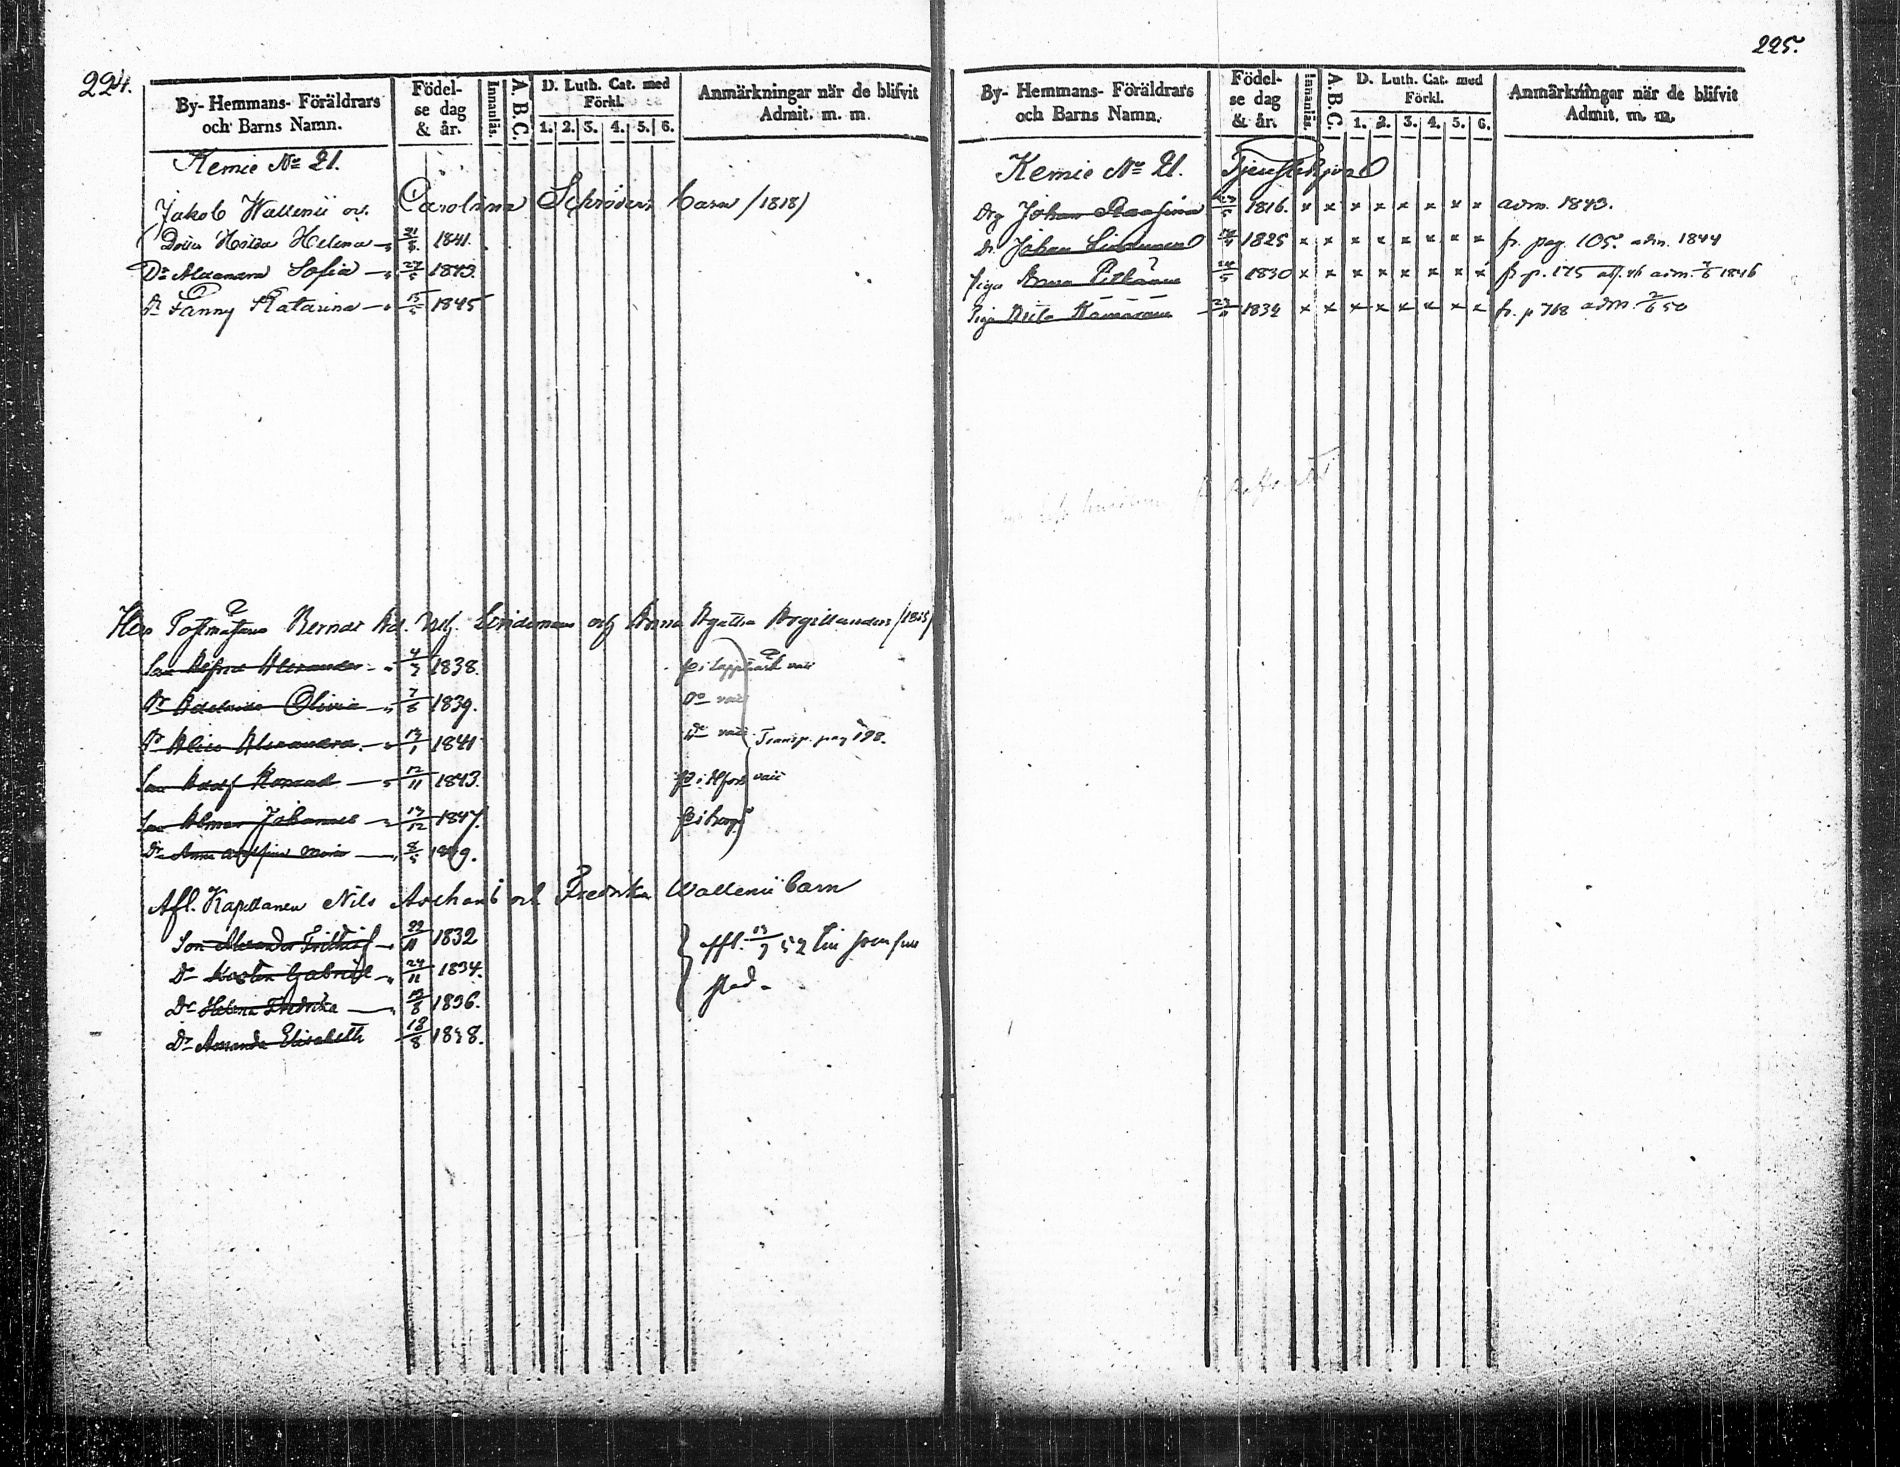 224.
By- Hemmans- Föräldrars och Barns Namn.
Födelse dag & år.
Innanläs.
A. B. C.
D. Luth. Cat. med Förkl.
1. 2. 3. 4. 5. 6.
Anmärkningar när de blifvit Admit. m. m.
Kemie No 21.
Jakob Wallenii och Carolina Schröders barn (1818)
Hilda Helena 21/8 1841.
Dr Alexandra Sofia 27/5 1843.
Dr Fanny Katarina 13/5 1845
Herr Bernat Ad. Lindeman och Anna Agatha Argillanders
Son Alfred Alexander 4/3 1838.
Dr Adelaide Olivia 7/6 1839.
Do
Dr Alice Alexandra 13/1 1841
Do Transp. pag 198.
Son Adolf Konrad 12/11 1843.
Son Johannes 13/12 1847.
Dr Anna Maria 8/5 1849.
Afl. Kapellanen Nils Aschani och Fredrika Wallenii barn
Son Alexander Frithiof 22/11 1832
ffl. 13/7 52
Dr Gabriel 24/11 1834.
stad
Dr Helena Fredrika 13/8 1836.
Dr Amanda Elisabeth 18/8 1838.
225.
By- Hemmans- Föräldrars och Barns Namn.
Födelse dag & år.
Innanläs.
A. B. C.
D. Luth. Cat. med Förkl.
1. 2. 3. 4. 5. 6.
Anmärkningar när de blifvit Admit. m. m.
Kemie No 21. Tjenstehjon
Drg Johan 1816. x x x x x x x x adm. 1843.
Dr Johan 1825 x x x x x x x x fr. pag. 105. adm. 1844
Piga Anna Pitkänen 1830 x x x x x x x x fr p. 175 adm. 1846
Piga 1832 x x x x x x x x fr. p 768 adm. 2/6 50